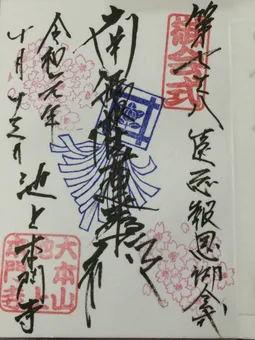 御会式
第七百三十八遠忌報恩御会式
南無妙法蓮華経
令和元年
十月十三日
池上本門寺
大本山
池上
本門寺